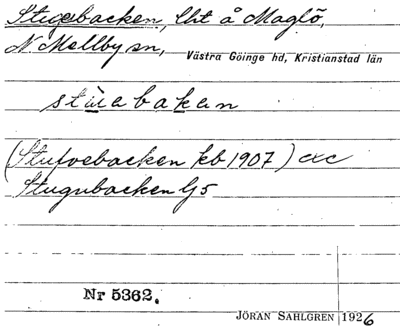 Stugebacken, lht å Maglö,
N. Mellby sn, Västra Göinge hd, Kristianstad län
stùebaken
(Stufvebacken kb 1907)
Stugubacken Gj5
Nr 5362.
JÖRAN SAHLGREN 1926